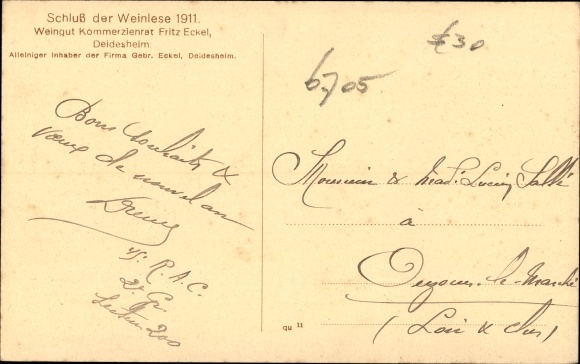 Schluß der Weinlese 1911.
Weingut Kommerzienrat Fritz Eckel,
Deidesheim.
Alleiniger Inhaber der Firma Gebr. Eckel, Deidesheim.
£30
6705
Bons souhaits &
vœux de nouvel an
R.A.C.
2e Gr.
Secteur 200
Monsieur & Mad. Lucien Sallé
à
Ouzouer-le-Marché
(Loir & Cher)
qu 11